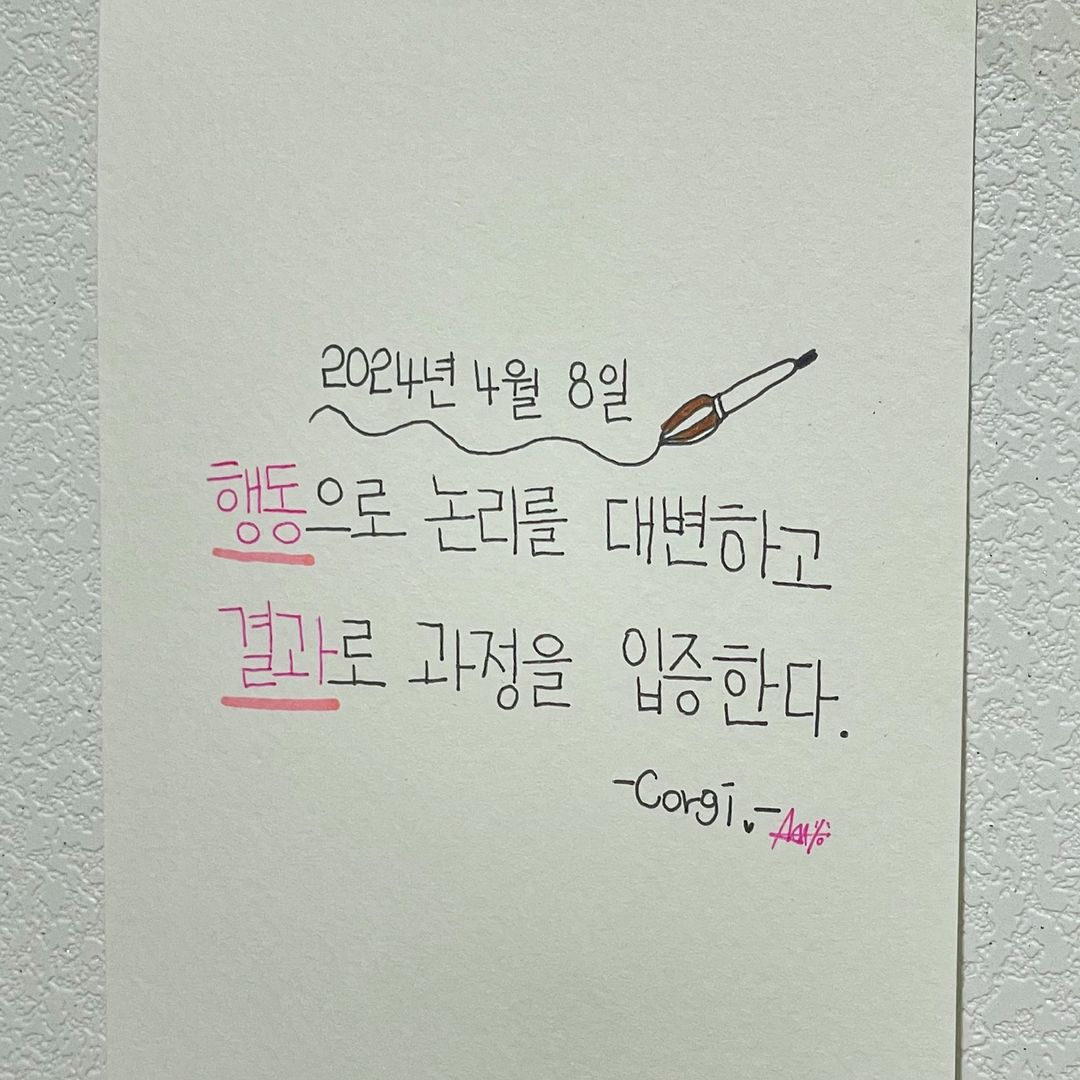 2024년 4월 8일
행동으로 논리를 대변하고
결과로 과정을 입증한다.
-Corgi.-